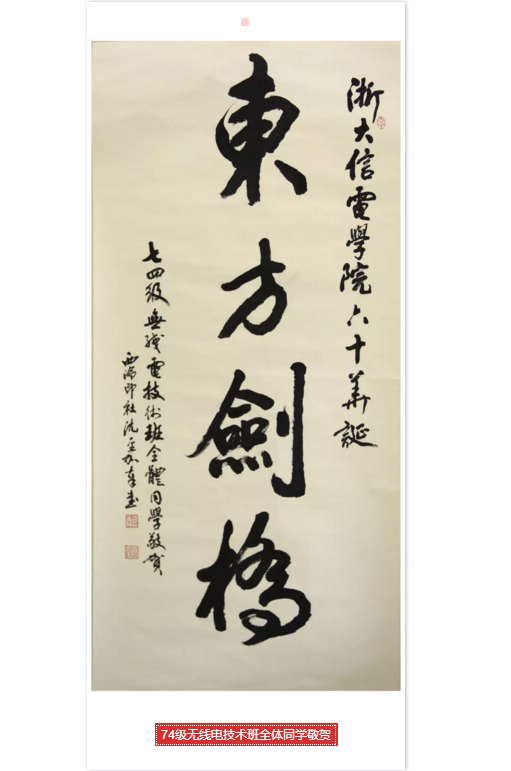 浙大信電學院六十華誕
東方劍橋
七四級無線電技術班全體同學敬賀
西泠印社沈立新書
74级无线电技术班全体同学敬贺